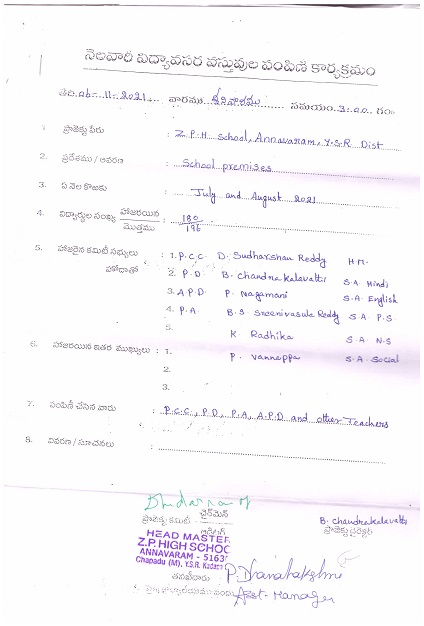 నెలవారీ విద్యావసర వస్తువుల పంపిణీ కార్యక్రమం
తేది: 06-11-2021 వారము శనివారము సమయం 3:00 గం
1. ప్రాజెక్టు పేరు : Z.P.H school, Annavaram, Y.S.R Dist
2. ప్రదేశము / ఆవరణ : School premises
3. ఏ నెల కొఱకు : July and August 2021
4. విద్యార్థుల సంఖ్య హాజరయిన / మొత్తము : 180 / 196
5. హాజరైన కమిటీ సభ్యులు : 1. P.C.C D. Sudharshan Reddy H.M.
హోదాతో 2. P.D B. Chandrakalavatti S.A Hindi
3. A.P.D P. Nagamani S.A English
4. P.A B.S Sreenivasula Reddy S.A P.S
5. K. Radhika S.A N.S
6. హాజరయిన ఇతర ముఖ్యులు : 1. P. Vannappa S.A Social
2.
3.
7. పంపిణీ చేసిన వారు : P.C.C., P.D, P.A, A.P.D and other Teachers
8. వివరణ / సూచనలు :
ఛైర్మెన్
ప్రాజెక్టు కమిటీ
B. Chandrakalavatti
ప్రాజెక్టు డైరెక్టర్
HEAD MASTER
Z.P. HIGH SCHOO
ANNAVARAM - 5163
Chapadu (M), Y.S.R. Kadapa
Asst-Manager